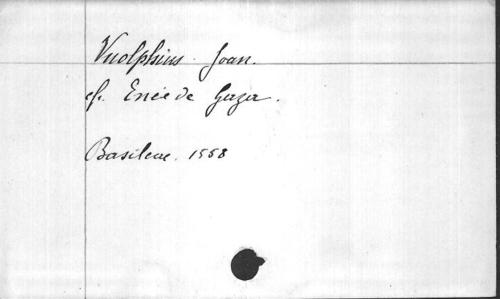 Vuolphius Joan.
cf. Enée de Gaza.
Basileae. 1558